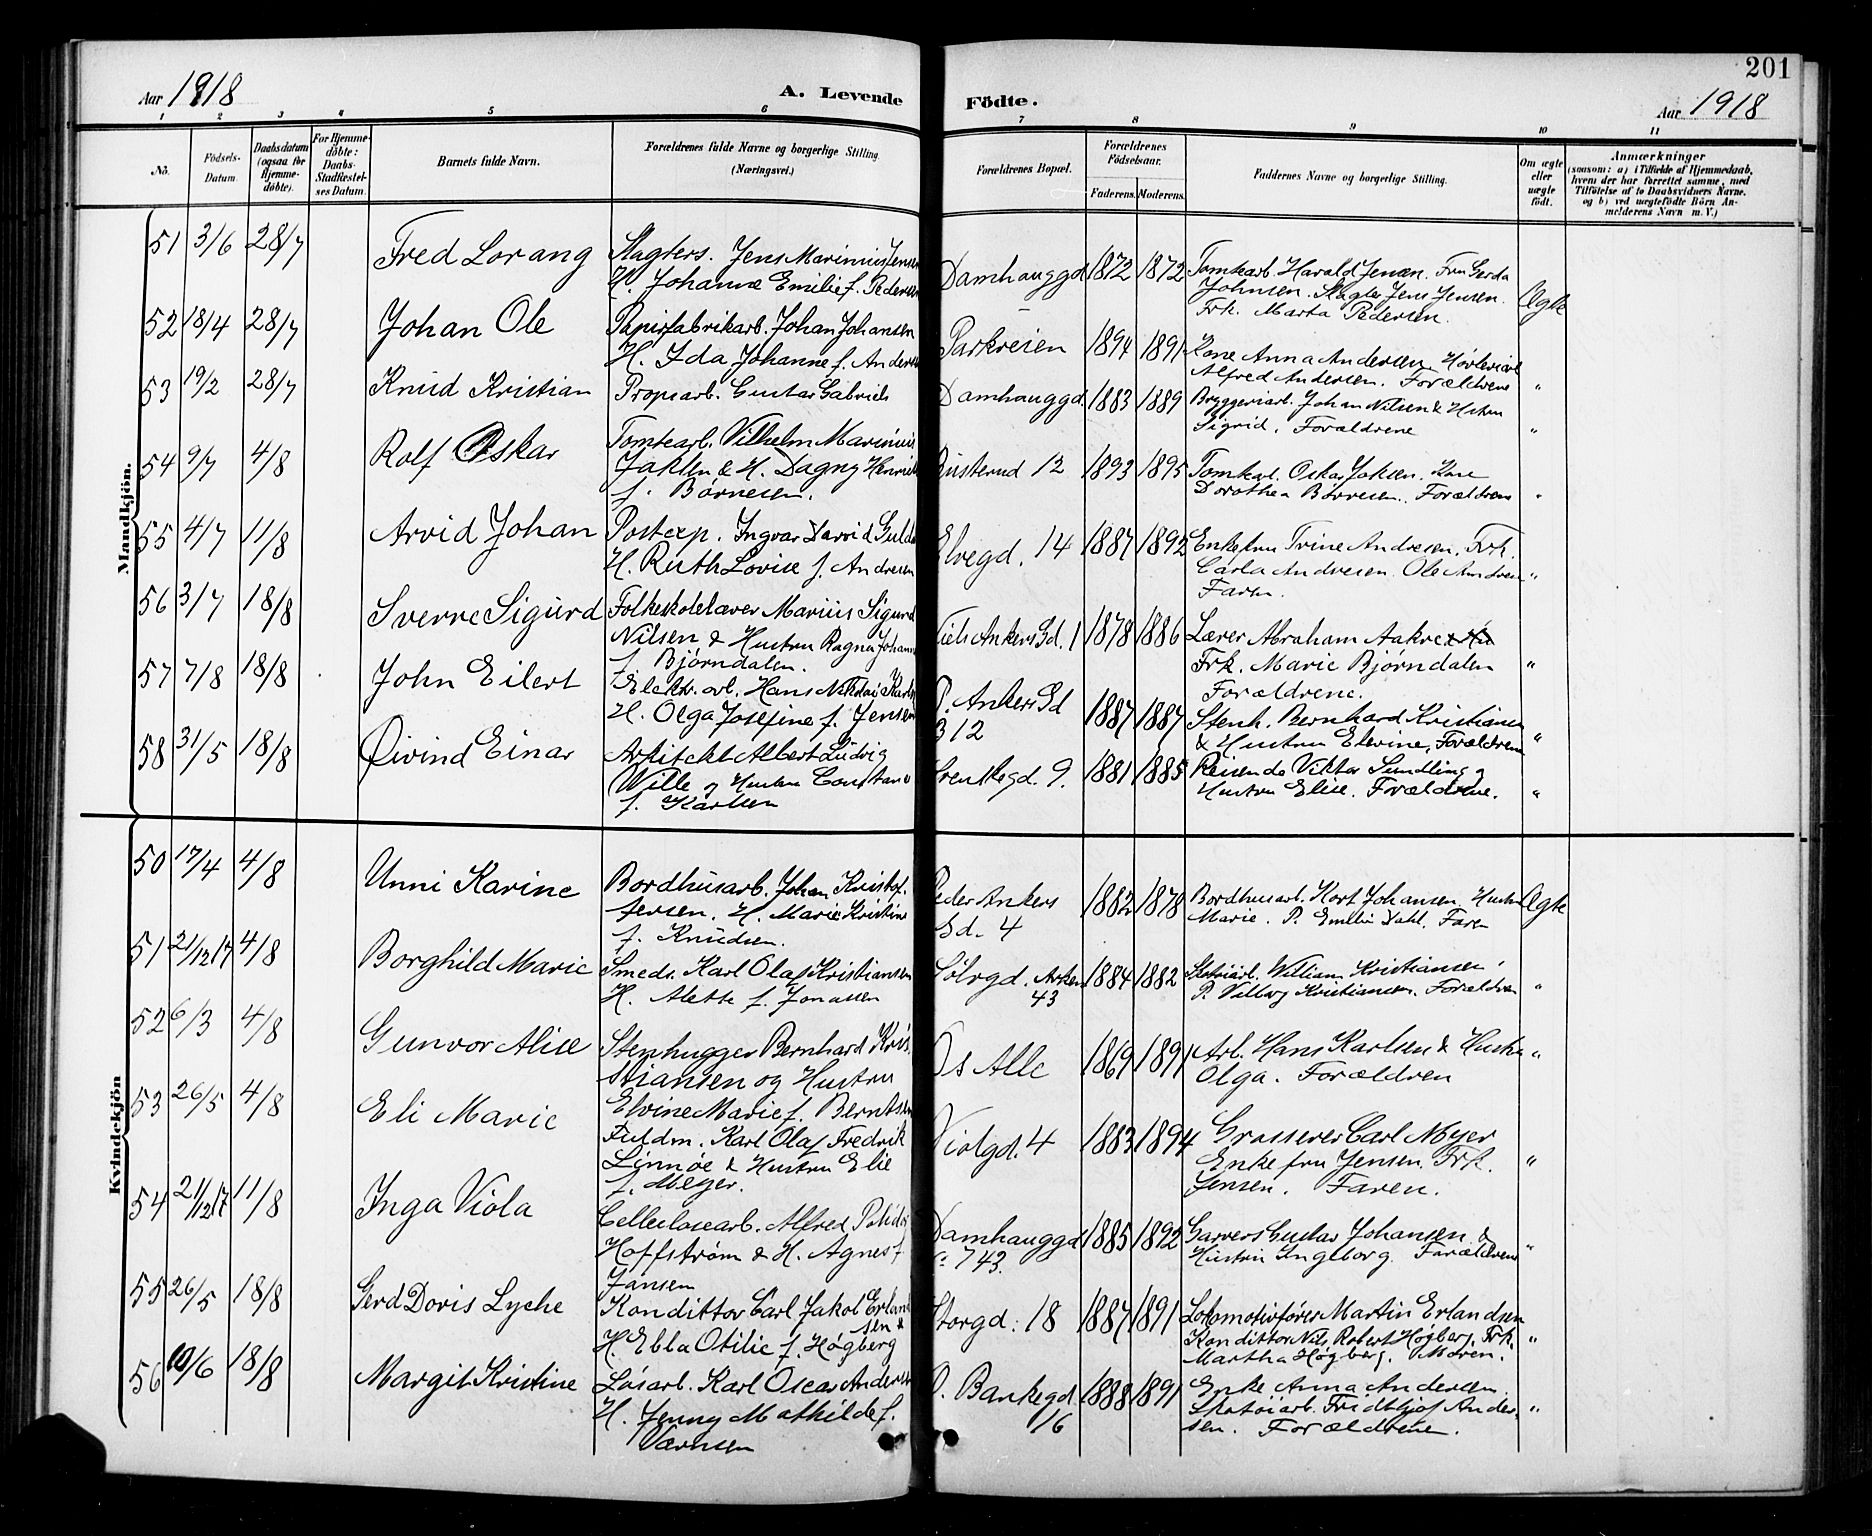 201
Aar 1918
A. Levende
Födte.
Aar 1918
1 2 3 4 5 6 7 8 9 10 11
No.
Födsels-
Datum.
Daabsdatum
(ogsaa for
Hjemme-
döbte).
For Hjemme-
döbte:
Daabs-
Stadfæstel-
ses Datum.
Barnets fulde Navn.
Forældrenes fulde Navne og borgerlige Stilling
(Næringsvei.)
Forældrenes Bopæl.
Forældrenes
Födselsaar.
Faderens. Moderens.
Faddernes Navne og borgerlige Stilling.
Om ægte
eller
uægte
födt.
Anmærkninger
(saasom: a) i Tilfælde af Hjemmedaab,
hvem der har forrettet samme, med
Tilföielse af to Daabsvidners Navne.
og b) ved uægtefödte Börn An-
melderens Navn m. V.)
Mandkjön.
51 3/6 28/7 Fred Lorang
Slagters. Jens Marinius Jensen
H. Johanne Emilie f. Pedersen
Damhauggd 1872 1872
Tomtearb. Harald Jensen. Fru Gerda
Johnsen. Slagter Jens Jensen.
Frk. Marta Pedersen.
Ægte
52 18/4 28/7 Johan Ole
Papirfabrikarb. Johan Johansen
H. Ida Johanne f. Andersen
Parkveien 1894 1891
Kone Anna Andersen
Alfred Andersen. Forældrene "
53 19/2 28/7 Knud Kristian
Propsarb. Gustav Gabriels
Damhauggd. 1883 1889
Bryggeriarb. Johan Nilsen & Hustru
Sigrid. Forældrene "
54 9/7 4/8 Rolf Oskar
Tomtearb. Vilhelm Marinius
& H. Dagny
f. Børresen.
12 1893 1895
Oskar. Kone
Dorothea Børresen. Forældrene "
55 4/7 11/8 Arvid Johan
Postexp. Ingvar
H. Ruth Lovise f. Andresen
Elvegd. 14 1887 1892
Enkefru Trine Andresen. Frk.
Carla Andresen. Ole Andresen
Faren. "
56 3/7 18/8 Sverre Sigurd
Folkeskolelærer Marius Sigurd
Nilsen & Hustru Ragna Johanne
f. Bjørndalen.
Niels Ankers Gd. 1 1878 1886
Lærer Abraham Aakre
Frk. Marie Bjørndalen
Forældrene. "
57 7/8 18/8 John Eilert
Elektr. arb. Hans Nikolai
H. Olga Josefine f. Jensen
P. Ankers Gd
B 12 1887 1887
Stenh. Bernhard Kristiansen
& Hustru Elvine, Forældrene "
58 31/5 18/8 Øivind Einar
Arkitekt Albert Ludvig
Wille og Hustru Constance
f. Karlsen
Svenskegd. 9. 1881 1885
Reisende Viktor Sundling og
Hustru Elise. Forældrene. "
Kvindekjön
50 17/4 4/8 Unni Karine
Bordhusarb. Johan Kristof-
fersen. H. Marie Kristine
f. Knudsen.
Peder Ankers
Gd. 4 1882 1878
Bordhusarb. Kort Johansen. Hustru
Marie. P. Emilie Dahl. Faren
Ægte
51 21/12 17 4/8 Borghild Marie
Smeds. Karl Olaf Kristiansen
H. Alette f. Jonassen
Sølvgd.
43 1884 1882
Skotøiarb. William Kristiansen.
P. Valborg Kristiansen. Forældrene "
52 6/3 4/8 Gunvor Alise
Stenhugger Bernhard Kris-
tiansen og Hustru
Elvine Marie f. Berntsen
Os Alle 1869 1891
Arb. Hans Karlsen & Hustru
Olga. Forældren "
53 26/5 4/8 Eli Marie
Fuldm. Karl Olaf Fredrik
Linnøe & Hustru Elie
f. Meyer.
Violgd. 4 1883 1894
Grosserer Carl Meyer
Enkefru Jensen. Frk.
Jensen. Faren. "
54 21/12 17 11/8 Inga Viola
Cellulosearb. Alfred
Hoffstrøm & H. Agnes f.
Jansen
Damhauggd
743. 1885 1892
Garvers Gustav Johansen &
Hustru Ingeborg. Forældrene "
55 26/5 18/8 Gerd Doris Lyche
Kondittor Carl Jakob Erland-
sen &
H. Ebla Otilie f. Høgberg
Storgd. 18 1887 1891
Lokomotivfører Martin Erlandsen
Kondittor Nils Robert Høgberg, Frk.
Martha Høgberg. Moren. "
56 10/6 18/8 Margit Kristine
Løsarb. Karl Oscar Andersen
H. Jenny Mathilde f.
Værnsen
O. Bankegd.
1/6 1888 1891
Enke Anna Andersen
Skotøiarb. Fridthjof Ander-
sen. Forældrene. "